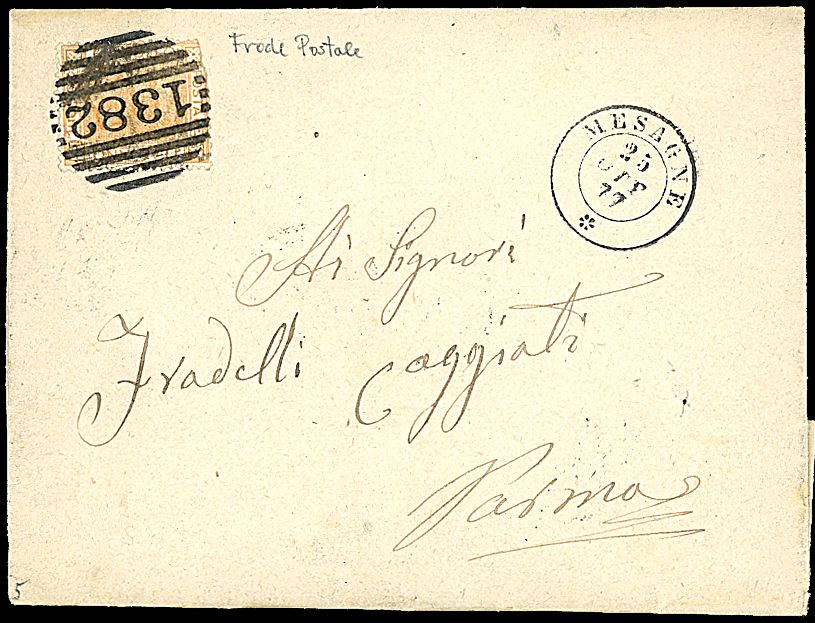 Frode Postale
1382
MESAGNE
25
OTT
77
Ai Signori
Fradelli Caggiati
Parma
5